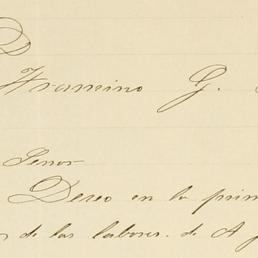 Francisco G.
Señor
Deseo en la prim
de las labores de A